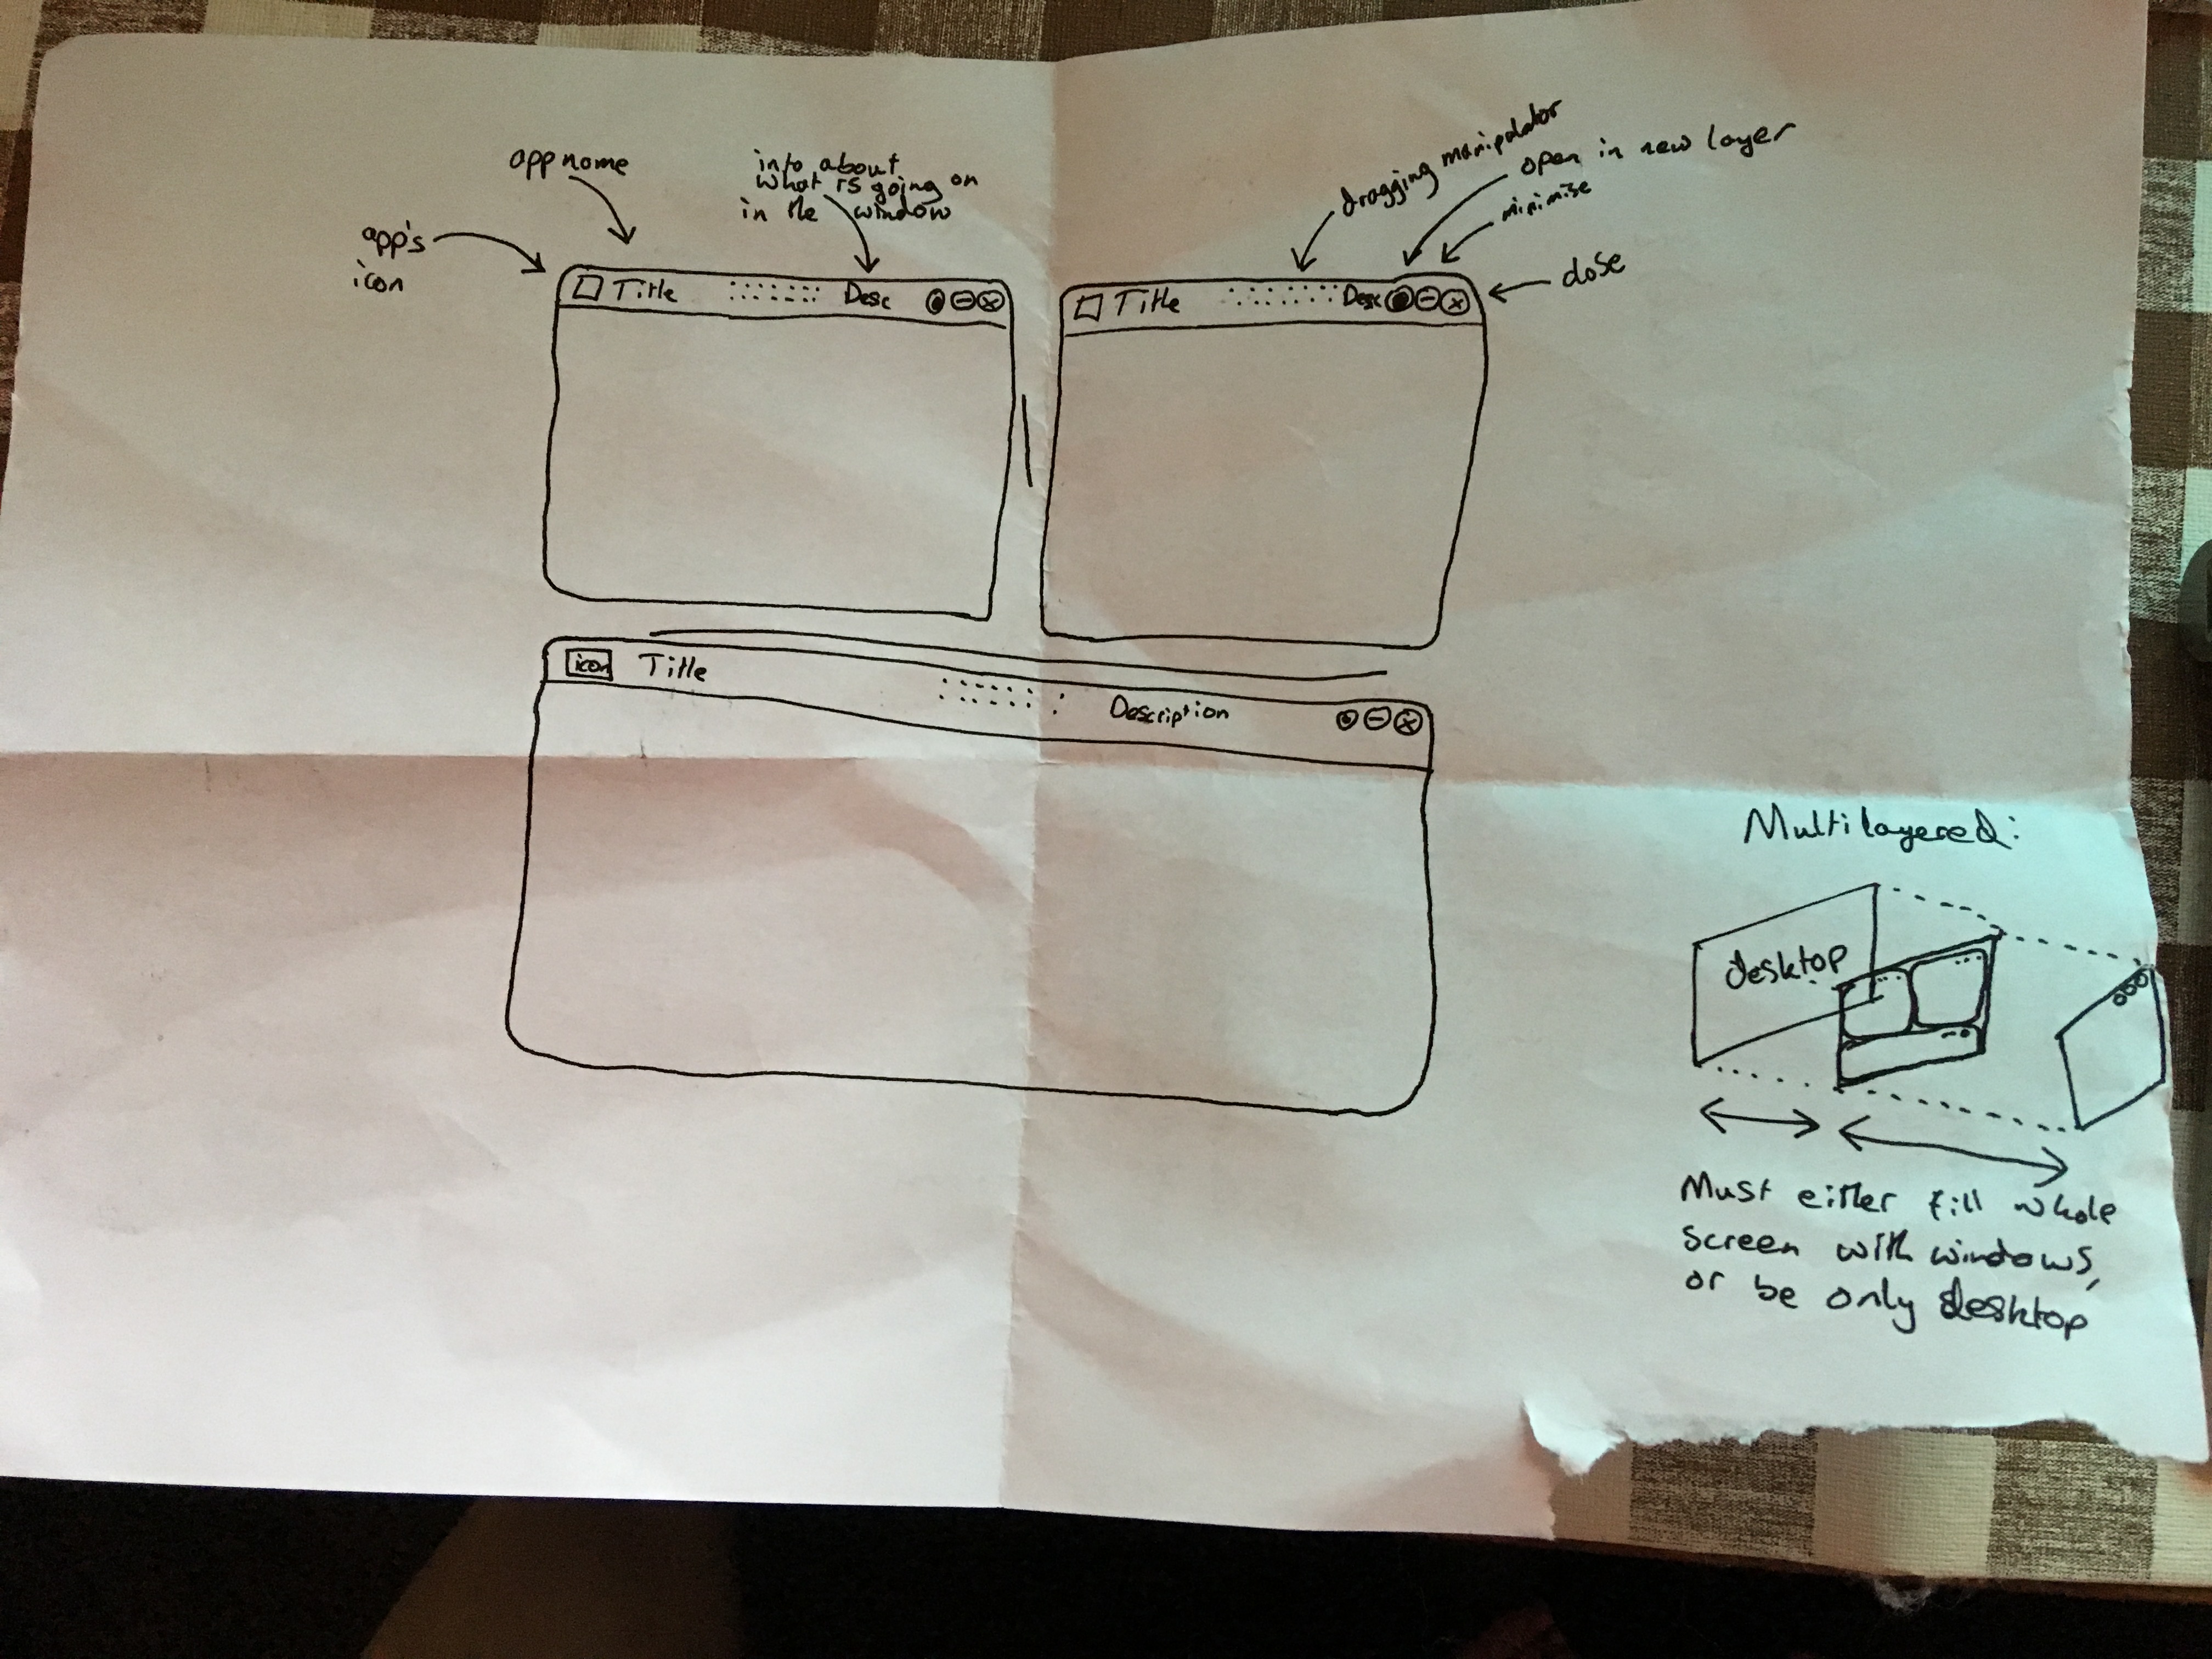 app's
icon
app name
info about
what is going on
in the window
dragging manipulator
open in new layer
minimise
close
Title
Desc
Title
Desc
icon
Title
Description
Multilayered:
desktop
Must either fill whole
screen with windows,
or be only desktop